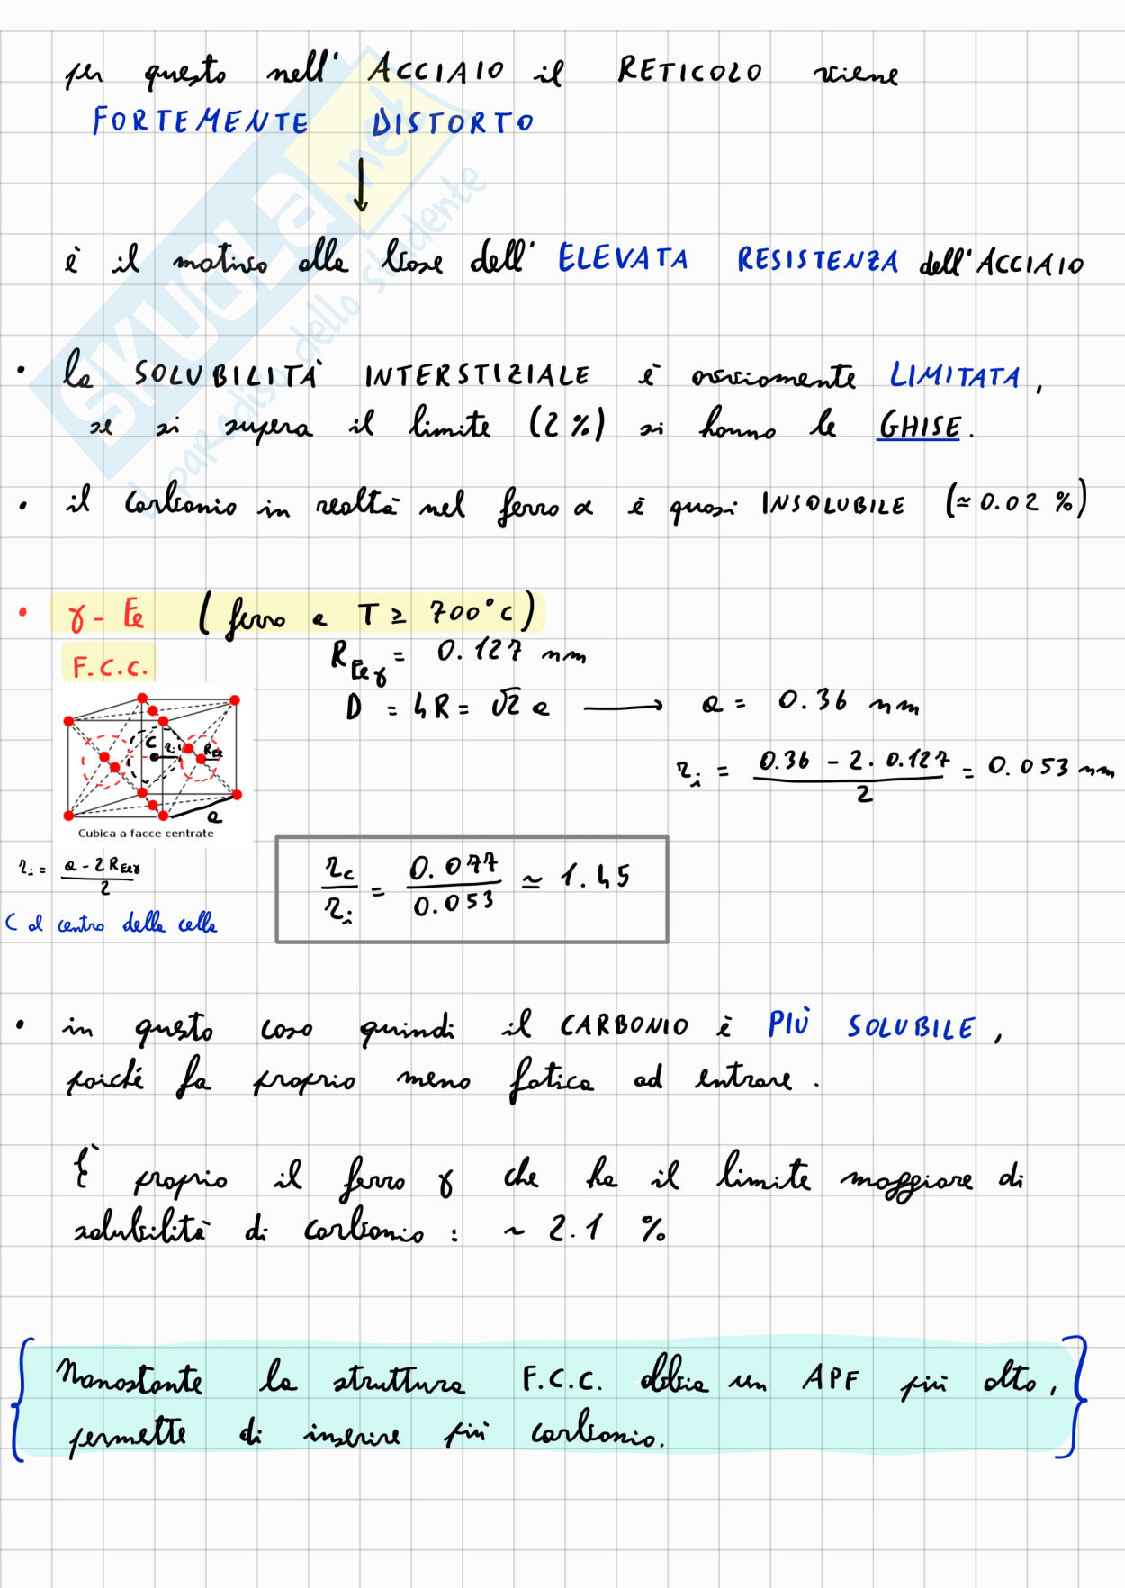 per questo nell' ACCIAIO il RETICOLO viene
FORTEMENTE DISTORTO
↓
è il motivo alla base dell' ELEVATA RESISTENZA dell'ACCIAIO
• la SOLUBILITÀ INTERSTIZIALE è ovviamente LIMITATA,
se si supera il limite (2%) si hanno le GHISE.
• il carbonio in realtà nel ferro α è quasi INSOLUBILE (≃0.02 %)
• γ - Fe (ferro a T ≥ 700°C)
F.C.C.
R Fe γ = 0.127 nm
D = 4R = √2 a → a = 0.36 nm
C ri RFe
a
Cubica a facce centrate
ri = (0.36 - 2 · 0.127) / 2 = 0.053 nm
ri = (a - 2 R Feγ) / 2
rc / ri = 0.077 / 0.053 ≃ 1.45
C al centro della cella
• in questo caso quindi il CARBONIO è PIÙ SOLUBILE,
poiché fa proprio meno fatica ad entrare.
È proprio il ferro γ che ha il limite maggiore di
solubilità di carbonio : ~ 2.1 %
Nonostante la struttura F.C.C. abbia un APF più alto,
permette di inserire più carbonio.
SKUOLA.net
il paradiso dello studente